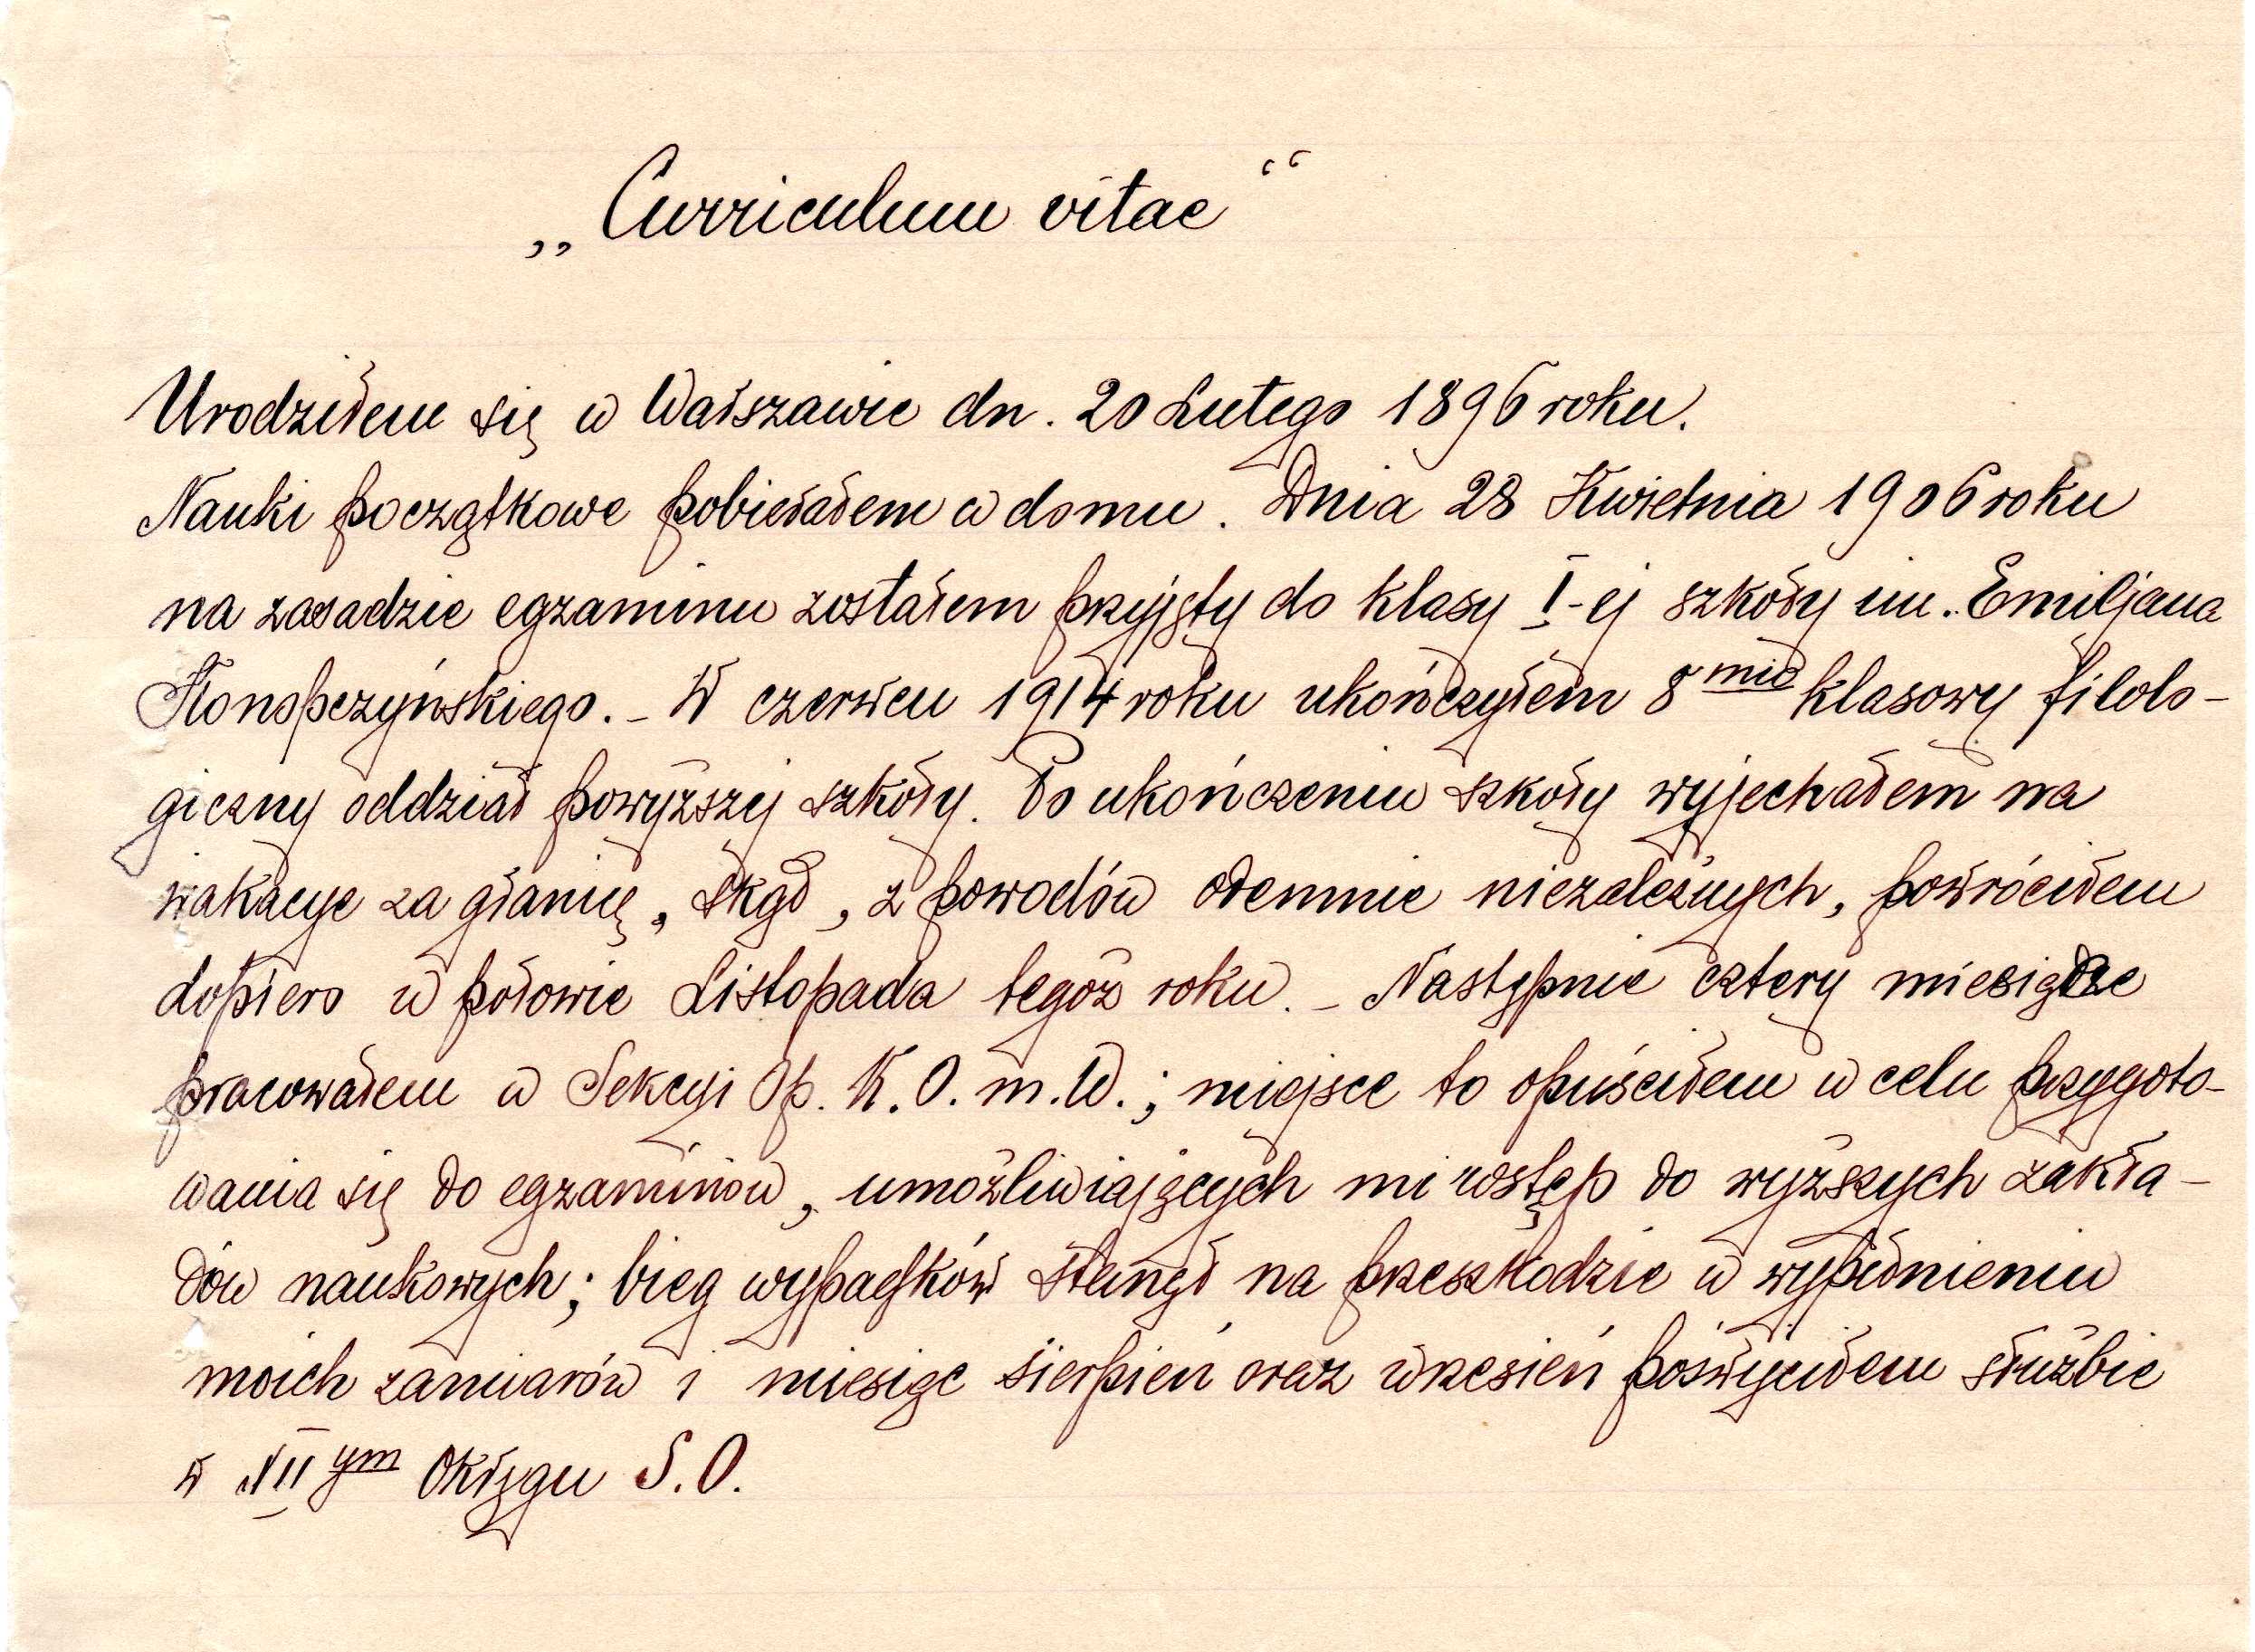 „Curriculum vitae“
Urodziłem się w Warszawie dn. 20 Lutego 1896 roku.
Nauki początkowe pobierałem w domu. Dnia 28 Kwietnia 1906 roku
na zasadzie egzaminu zostałem przyjęty do klasy I-ej szkoły im. Emiljana
Konopczyńskiego. - W czerwcu 1914 roku ukończyłem 8mio klasowy filolo-
giczny oddział powyższej szkoły. Po ukończeniu szkoły wyjechałem na
wakacye za granicę, skąd, z powodów odemnie niezależnych, powróciłem
dopiero w połowie Listopada tegoż roku. - Następnie cztery miesiące
pracowałem w Sekcyi Op. K. O. m. W.; miejsce to opuściłem w celu przygoto-
wania się do egzaminów, umożliwiających mi wstęp do wyższych zakła-
dów naukowych; bieg wypadków stanął na przeszkodzie w wypełnieniu
moich zamiarów i miesiąc sierpień oraz wrzesień poświęciłem służbie
w XIIym Okręgu S. O.